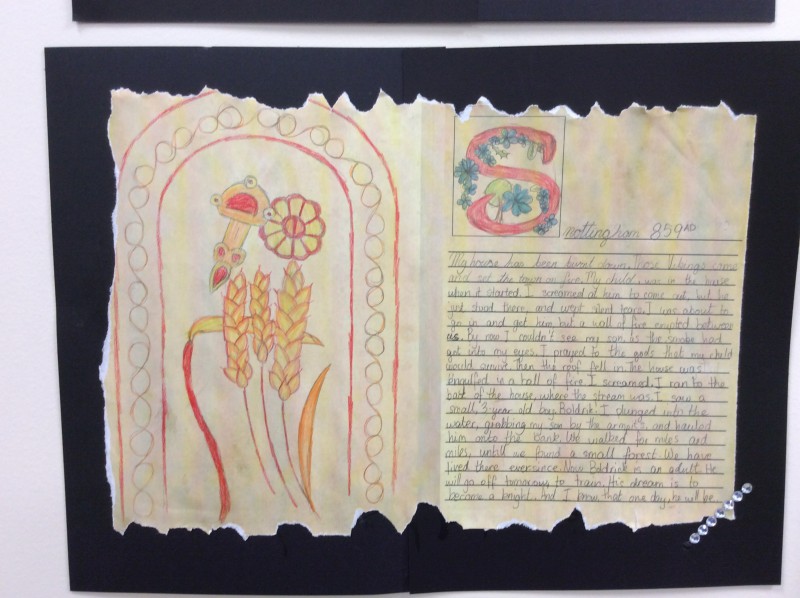 S nottingham 859AD
My house has been burnt down. Those Vikings came
and set the town on fire. My child, was in the house
when it started. I screamed at him to come out, but he
just stood there, and wept silent tears. I was about to
go in and get him, but a wall of fire erupted between
us. By now I couldn't see my son, as the smoke had
got into my eyes. I prayed to the gods that my child
would survive then the roof fell in. The house was
engulfed in a ball of fire. I screamed. I ran to the
back of the house, where the stream was. I saw a
small, 3-year old boy, Baldrik. I plunged into the
water, grabbing my son by the armpits, and hauled
him onto the bank. We walked for miles and
miles, until we found a small forest. We have
lived there eversince. Now Baldrik is an adult. He
will go off tomorrow, to train. His dream is to
become a knight. And I know, that one day, he will be.